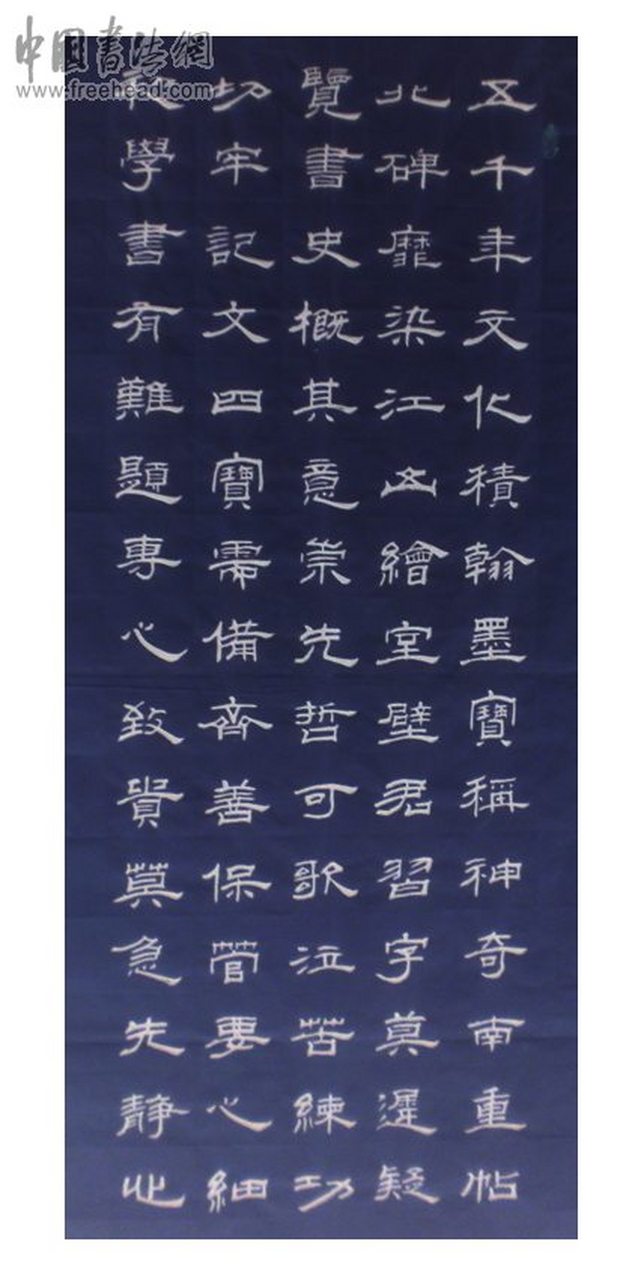 中國書法網
www.freehead.com
五千年文化積翰墨寶稱神奇南重帖
北碑靡染江山繪堂壁君習字莫遲疑
覽書史概其意崇先哲可歌泣苦練功
切牢記文四寶需備齊善保管要心細
學書有難題專心致貴莫急先靜